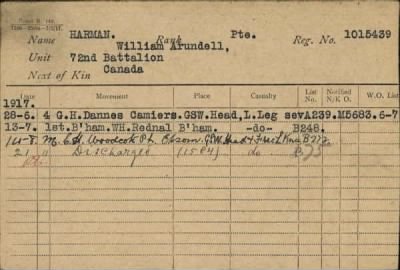 HARMAN. Rank Pte. Reg. No. 1015439
Name William Arundell,
Unit 72nd Battalion
Next of Kin Canada
Date Movement Place Casualty List No. Notified N/K O. W.O. List
1917.
28-6. 4 G.H. Dannes Camiers. GSW. Head, L. Leg sev A239. M5683. 6-7
13-7. 1st. B'ham. WH. Rednal B'ham. -do- B248.
14-8. M. C. H. Woodcote Pk. Epsom. GSW Head & Fract Knee
21 " Discharged do.